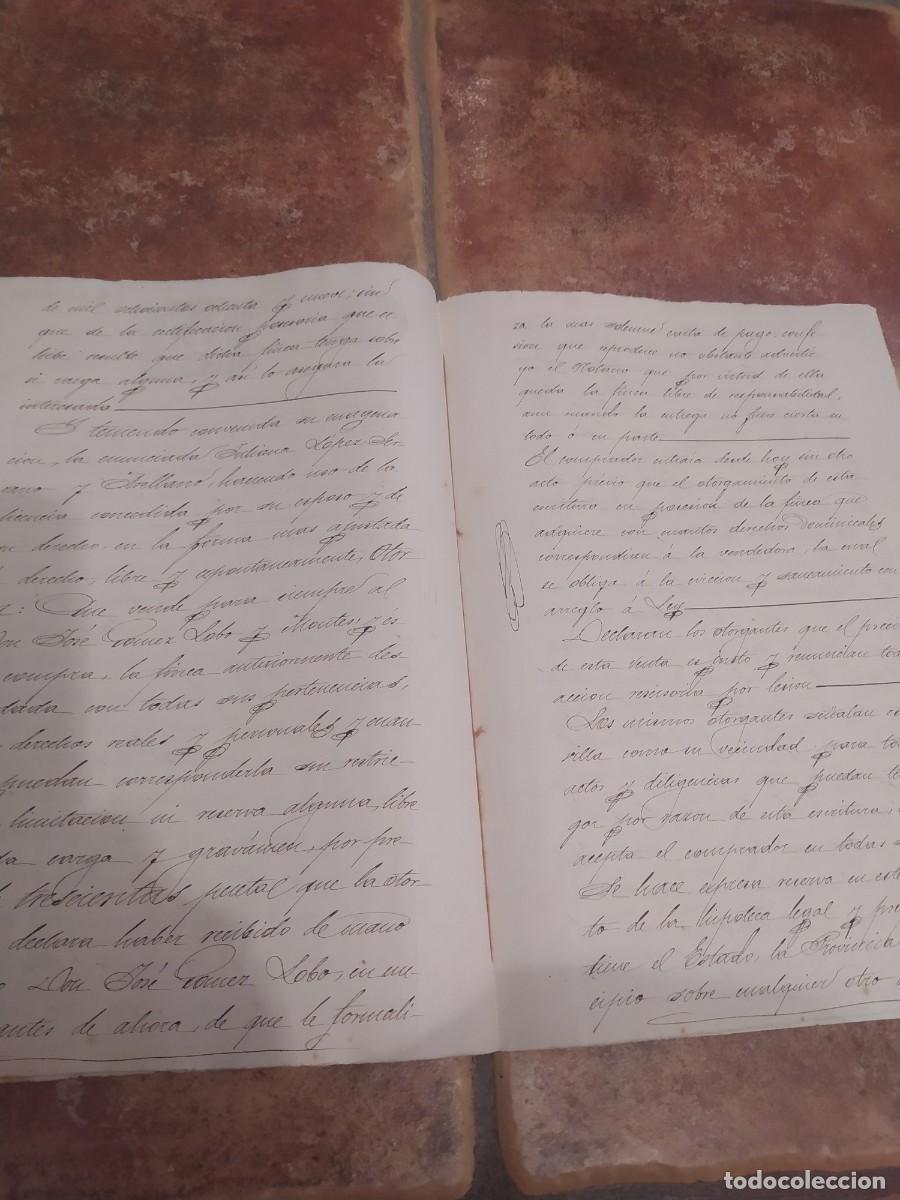 de mil ochocientos ochenta y nueve; sin
que de la certificacion posesoria que ex-
hibe resulte que dicha finca tenga sobre
si carga alguna, y asi lo asegura la
interesada
Y teniendo convenida su enagena
cion, la enunciada Juliana López Ser
rano y Arellano, haciendo uso de la
licencia concedida por su esposo y de
derecho, en la forma mas ajustada
derecho, libre y espontáneamente, Otor
: Que vende para siempre al
Don José Gomez Lobo y Montes, y és
compra, la finca anteriormente des
con todas sus pertenencias,
derechos reales y personales y cuan
puedan corresponderla sin restric
limitacion ni reserva alguna, libre
carga y gravámen, por pre
trescientas pesetas que la otor
declara haber recibido de mano
Don José Gomez Lobo, en mu
antes de ahora, de que le formali-
za la mas solemne carta de pago, confe
sion que reproduce no obstante advertir
yo el Notario que por virtud de ella
queda la finca libre de responsabilidad,
aun cuando la entrega no fuese cierta en
todo ó en parte
El comprador entrará desde hoy sin otro
acto previo que el otorgamiento de esta
escritura en posesion de la finca que
adquiere con cuantos derechos dominicales
correspondian á la vendedora, la cual
se obliga á la eviccion y saneamiento con
arreglo á Ley
Declaran los otorgantes que el preci
de esta venta es justo y renuncian toda
accion rescisoria por lesion
Los mismos otorgantes señalan es
villa como su vecindad, para to
actos y diligencias que puedan te
gar por razon de esta escritura,
acepta el comprador en todas s
Se hace espresa reserva en este
to de la hipoteca legal y pre
tiene el Estado, la Provincia
cipio sobre cualquier otro a
todocoleccion